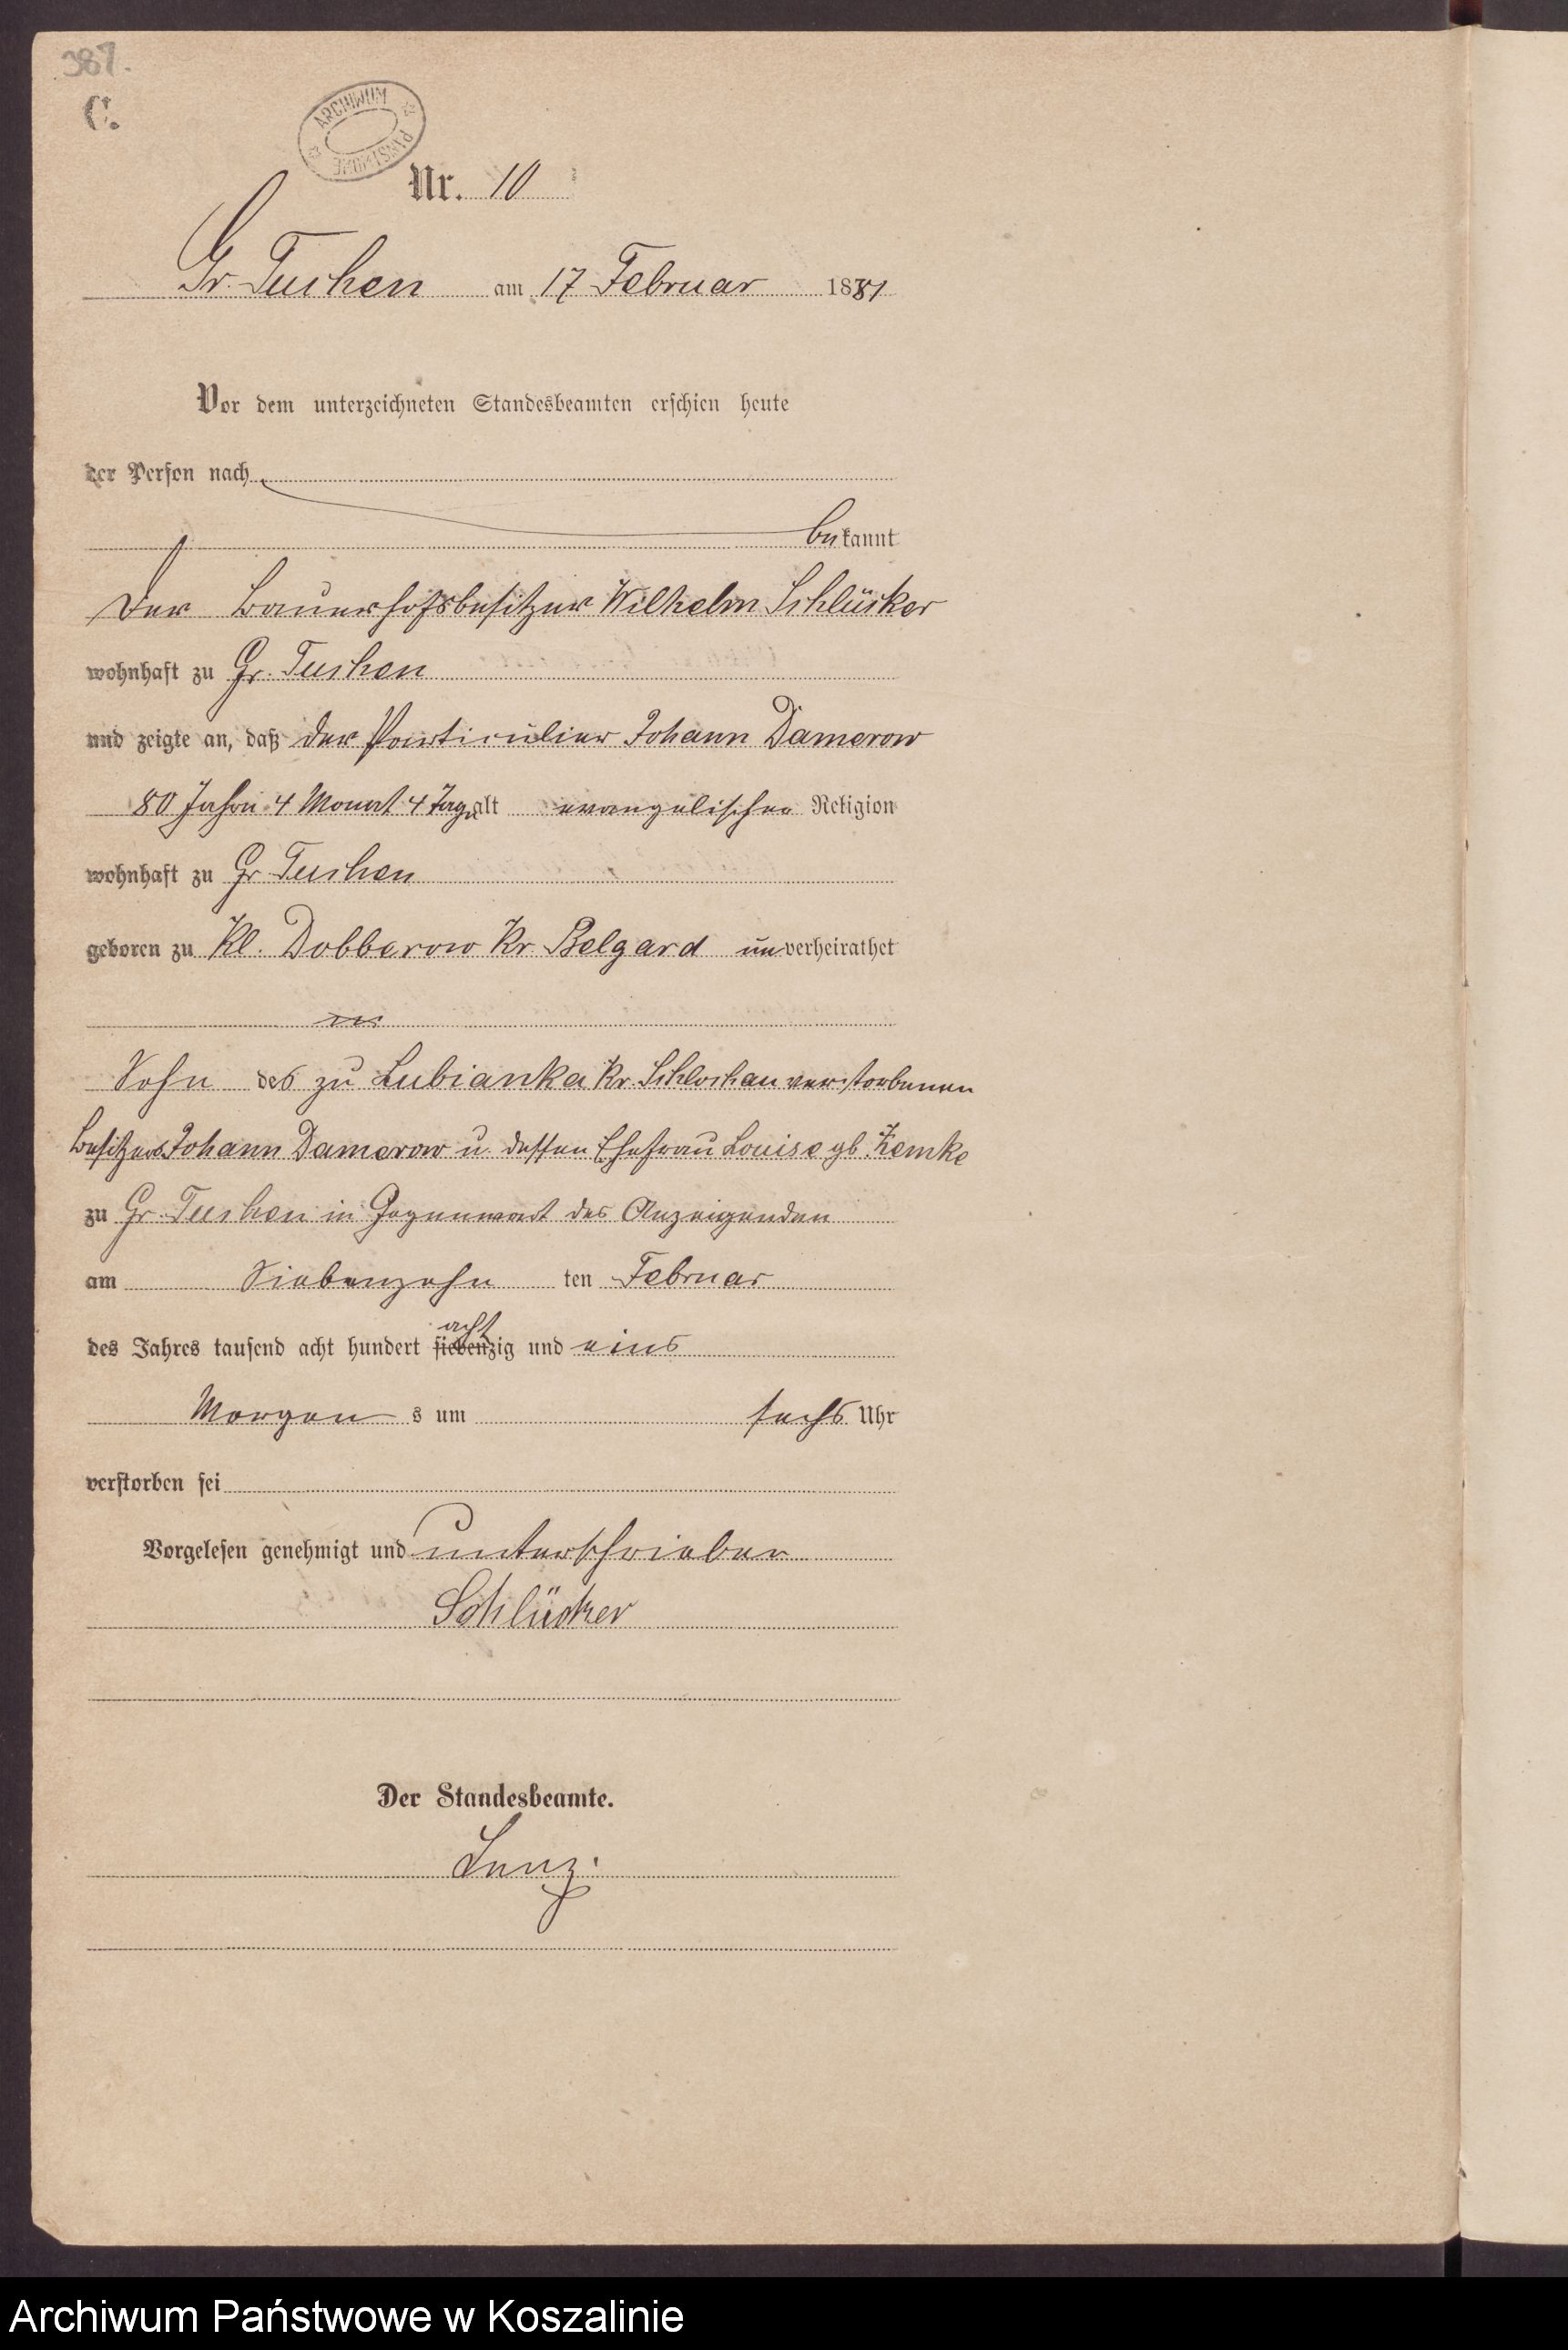 387.
C.
ARCHIWUM PAŃSTWOWE
Nr. 10
Gr. Tuchen am 17 Februar 1881
Vor dem unterzeichneten Standesbeamten erschien heute
der Person nach
bekannt
der Bauerhofsbesitzer Wilhelm Schlücker
wohnhaft zu Gr. Tuchen
und zeigte an, daß der Particulier Johann Damerow
80 Jahre 4 Monat 4 Tage alt evangelischer Religion
wohnhaft zu Gr. Tuchen
geboren zu Kl. Dobberow Kr. Belgard unverheirathet
Sohn des zu Lubianka Kr. Schlochau verstorbenen
Besitzers Johann Damerow u. dessen Ehefrau Louise gb. Zemke
zu Gr. Tuchen in Gegenwart des Anzeigenden
am Siebenzehn ten Februar
acht
des Jahres tausend acht hundert siebenzig und eins
Morgen s um sechs Uhr
verstorben sei
Vorgelesen genehmigt und unterschrieben
Schlücker
Der Standesbeamte.
Lenz.
Archiwum Państwowe w Koszalinie